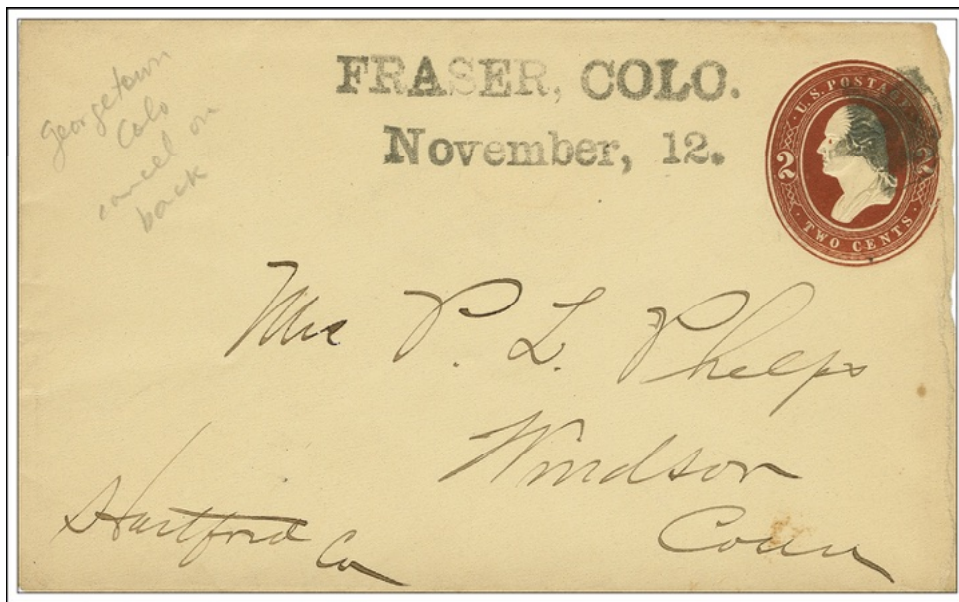 georgetown
Colo
cancel on
back
FRASER, COLO.
November, 12.
U.S. POSTAGE
2 2
TWO CENTS
Mrs P. L. Phelps
Windsor
Hartford Co
Conn